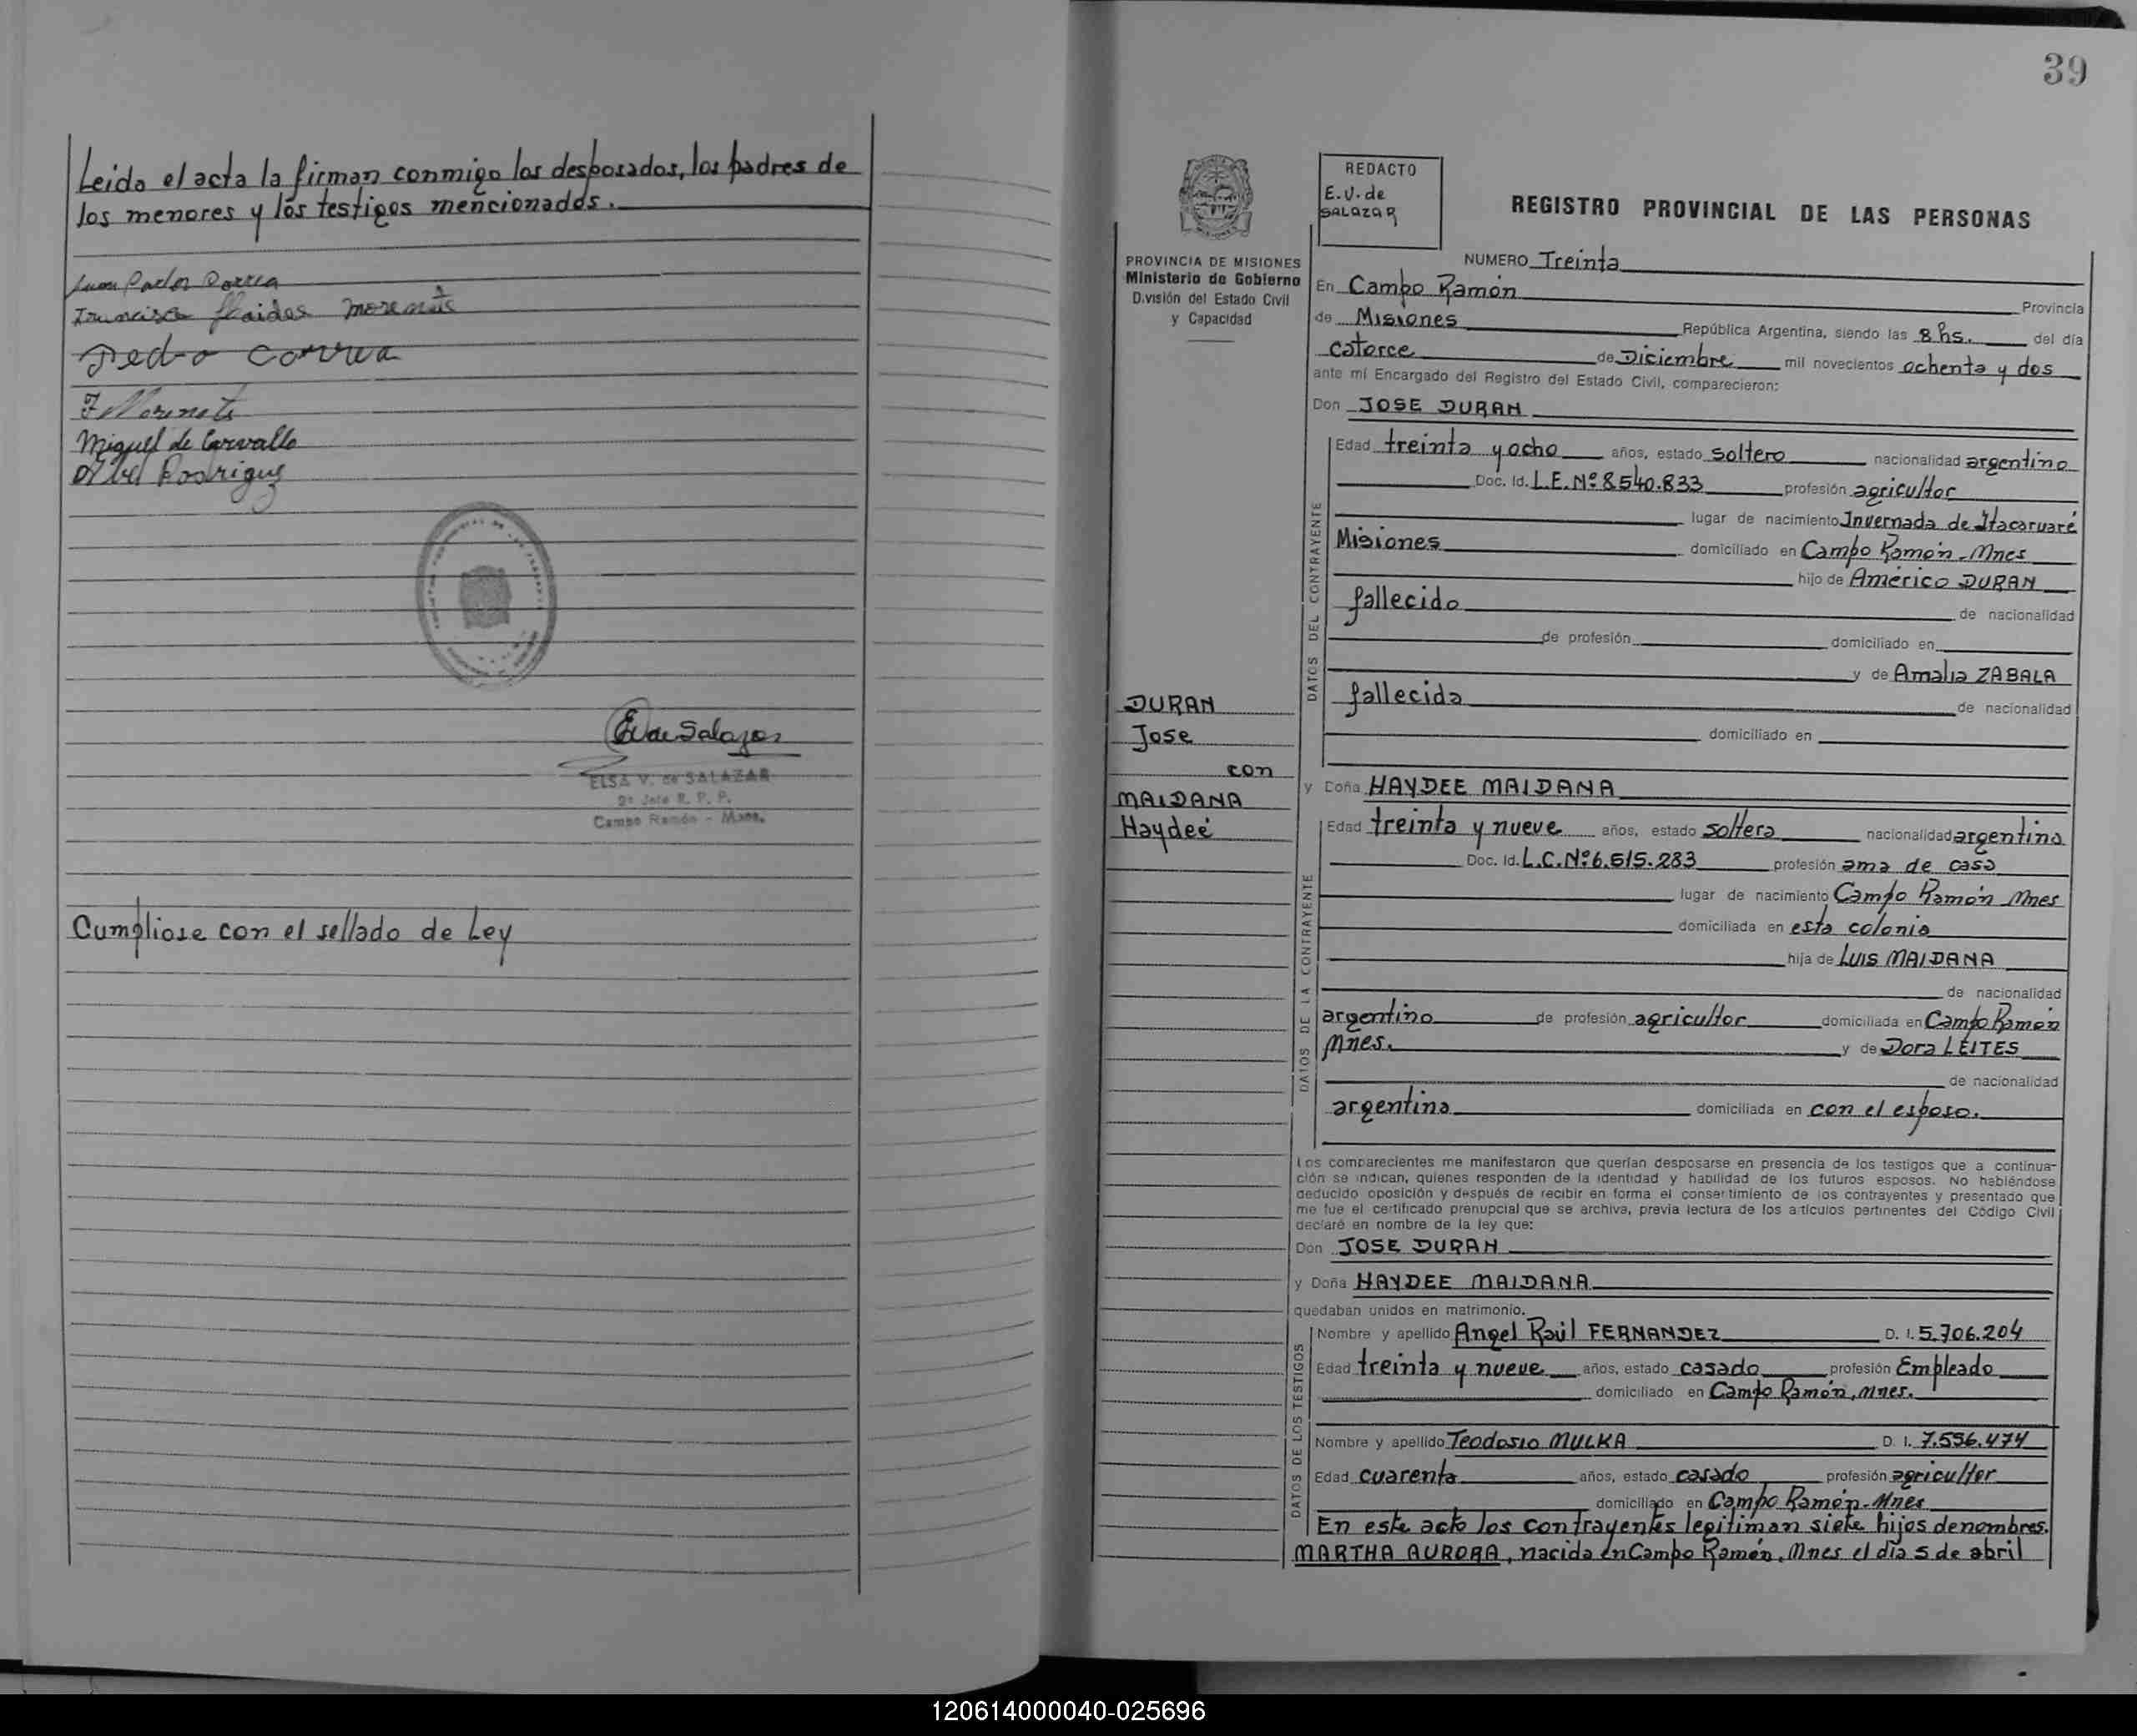 Leida el acta la firman conmigo los desposados, los padres de
los menores y los testigos mencionados.
Juan Carlos Correa
Pedro Correa
Miguel de Carvallo
E V de Salazar
ELSA V. de SALAZAR
2º Jefe R. P. P.
Campo Ramón - Mnes.
Cumpliose con el sellado de Ley
39
REDACTO
E.V. de
SALAZAR
REGISTRO PROVINCIAL DE LAS PERSONAS
PROVINCIA DE MISIONES
Ministerio de Gobierno
División del Estado Civil
y Capacidad
DURAN
Jose
con
MAIDANA
Haydeé
NUMERO Treinta
En Campo Ramón Provincia
de Misiones República Argentina, siendo las 8 hs. del día
catorce de Diciembre mil novecientos ochenta y dos
ante mí Encargado del Registro del Estado Civil, comparecieron:
Don JOSE DURAN
DATOS DEL CONTRAYENTE
Edad treinta y ocho años, estado soltero nacionalidad argentino
Doc. Id. L.E. Nº 8.540.833 profesión agricultor
lugar de nacimiento Invernada de Itacaruaré
Misiones domiciliado en Campo Ramón - Mnes
hijo de Américo DURAN
fallecido de nacionalidad
de profesión domiciliado en
y de Amalia ZABALA
fallecida de nacionalidad
domiciliado en
y Doña HAYDEE MAIDANA
DATOS DE LA CONTRAYENTE
Edad treinta y nueve años, estado soltera nacionalidad argentina
Doc. Id. L.C. Nº 6.515.283 profesión ama de casa
lugar de nacimiento Campo Ramón Mnes
domiciliada en esta colonia
hija de LUIS MAIDANA
de nacionalidad
argentino de profesión agricultor domiciliada en Campo Ramón
Mnes. y de Dora LEITES
de nacionalidad
argentina domiciliada en con el esposo.
Los comparecientes me manifestaron que querían desposarse en presencia de los testigos que a continua-
ción se indican, quienes responden de la identidad y habilidad de los futuros esposos. No habiéndose
deducido oposición y después de recibir en forma el consertimiento de los contrayentes y presentado que
me fue el certificado prenupcial que se archiva, previa lectura de los artículos pertinentes del Código Civil
declaré en nombre de la ley que:
Don JOSE DURAN
y Doña HAYDEE MAIDANA
quedaban unidos en matrimonio.
DATOS DE LOS TESTIGOS
Nombre y apellido Angel Raúl FERNANDEZ D. I. 5.706.204
Edad treinta y nueve años, estado casado profesión Empleado
domiciliado en Campo Ramón, Mnes.
Nombre y apellido Teodosio MULKA D. I. 7.556.474
Edad cuarenta años, estado casado profesión agricultor
domiciliado en Campo Ramón - Mnes
En este acto los contrayentes legitiman siete hijos de nombres.
MARTHA AURORA, nacida en Campo Ramón, Mnes el día 5 de abril
120614000040-025696